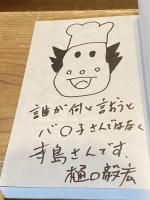 誰が何と言おうと
バ〇子さんではなく
寺島さんです.
樋口毅宏